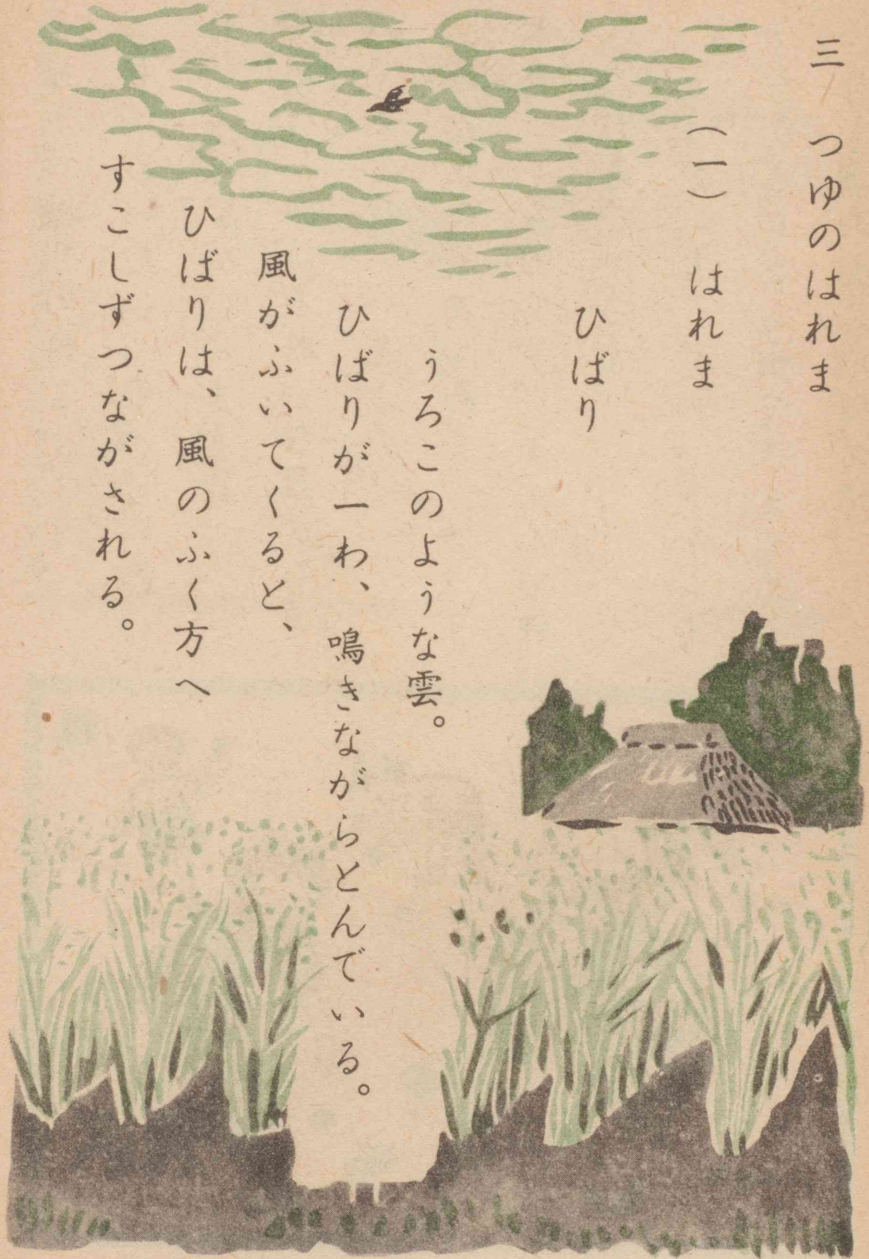 三 つゆのはれま
(一) はれま
ひばり
うろこのような雲。
ひばりが一わ、鳴きながらとんでいる。
風がふいてくると、
ひばりは、風のふく方へ
すこしずつながされる。